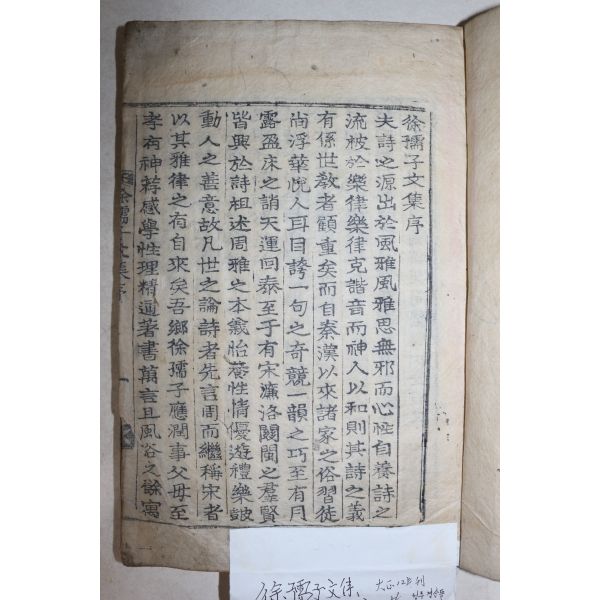 徐孺子文集序
夫詩之源出於風雅風雅思無邪而心性自養詩之
流被於樂律樂律克諧音而神人以和則其詩之義
有係世敎者顧重矣而自秦漢以來諸家之俗習徒
尙浮華悅人耳目誇一句之奇競一韻之巧至有月
露盈床之誚天運回泰至于有宋濂洛關閩之羣賢
皆興於詩祖述周雅之本義怡養性情優遊禮樂皷
動人之善意故凡世之論詩者先言周而繼稱宋者
以其雅律之有自來矣吾鄕徐孺子應潤事父母至
孝有神莠感學性理精通著書萬言且風谷之餘寓
徐孺子文集序
一
徐孺子文集
大正12年刊